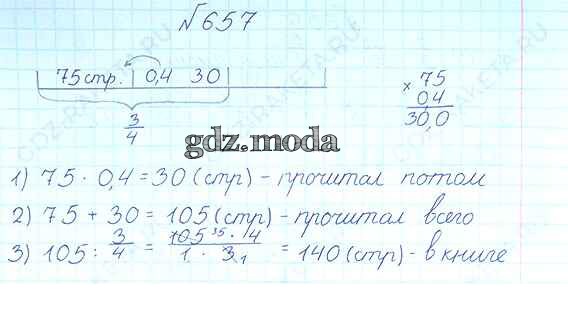 №657
75 стр. 0,4 30
3
4
× 75
0,4
30,0
gdz.moda
1) 75 · 0,4 = 30 (стр) - прочитал потом
2) 75 + 30 = 105 (стр) - прочитал всего
3) 105 : 3/4 = 105 35 · 4 / 1 · 3 1 = 140 (стр) - в книге
GDZ-RAKETA.RU